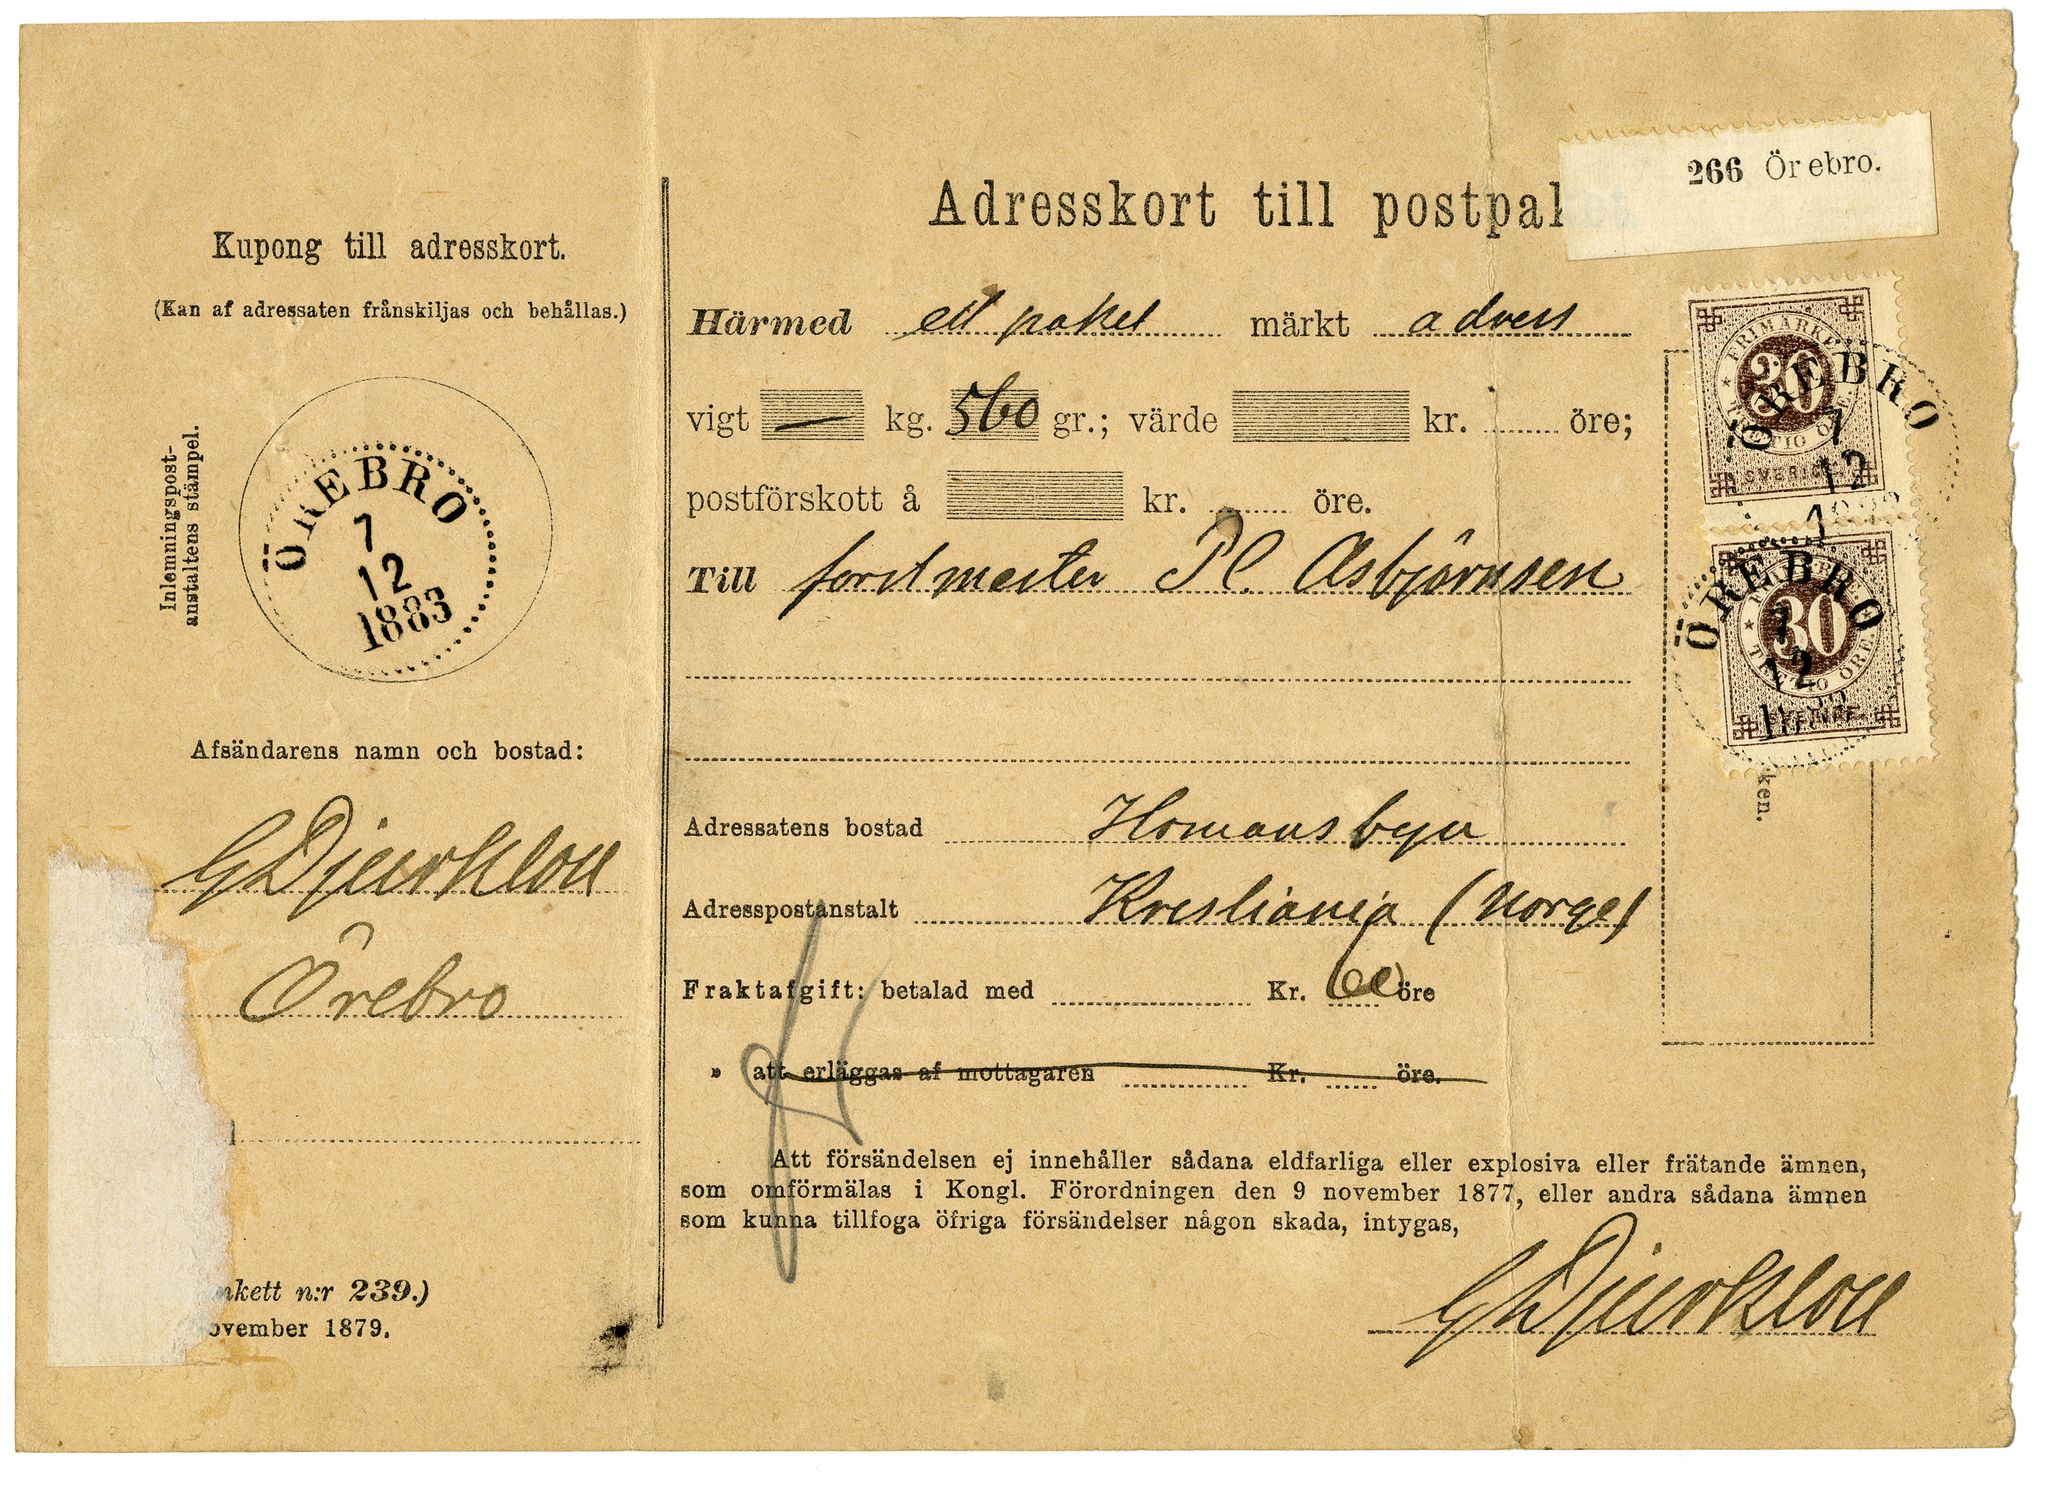 266 Örebro.
Adresskort till postpaket
Kupong till adresskort.
(Kan af adressaten frånskiljas och behållas.)
Inlemningspost-
anstaltens stämpel.
ÖREBRO
7
12
1883
Afsändarens namn och bostad:
G Djurklou
Örebro
nkett n:r 239.)
ovember 1879.
Härmed ett paket märkt adress
vigt — kg. 560 gr.; värde kr. öre;
postförskott å kr. öre.
Till forstmester P. C. Asbjörnsen
Adressatens bostad Homansbyen
Adresspostanstalt Kristiania (Norge)
Fraktafgift: betalad med Kr. 60 öre
» att erläggas af mottagaren Kr. öre.
Att försändelsen ej innehåller sådana eldfarliga eller explosiva eller frätande ämnen,
som omförmälas i Kongl. Förordningen den 9 november 1877, eller andra sådana ämnen
som kunna tillfoga öfriga försändelser någon skada, intygas,
G Djurklou
FRIMÄRKE
30
TRETTIO ÖRE
SVERIGE
ÖREBRO
7
12
1883
FRIMÄRKE
30
TRETTIO ÖRE
SVERIGE
ÖREBRO
7
12
1883
ken.